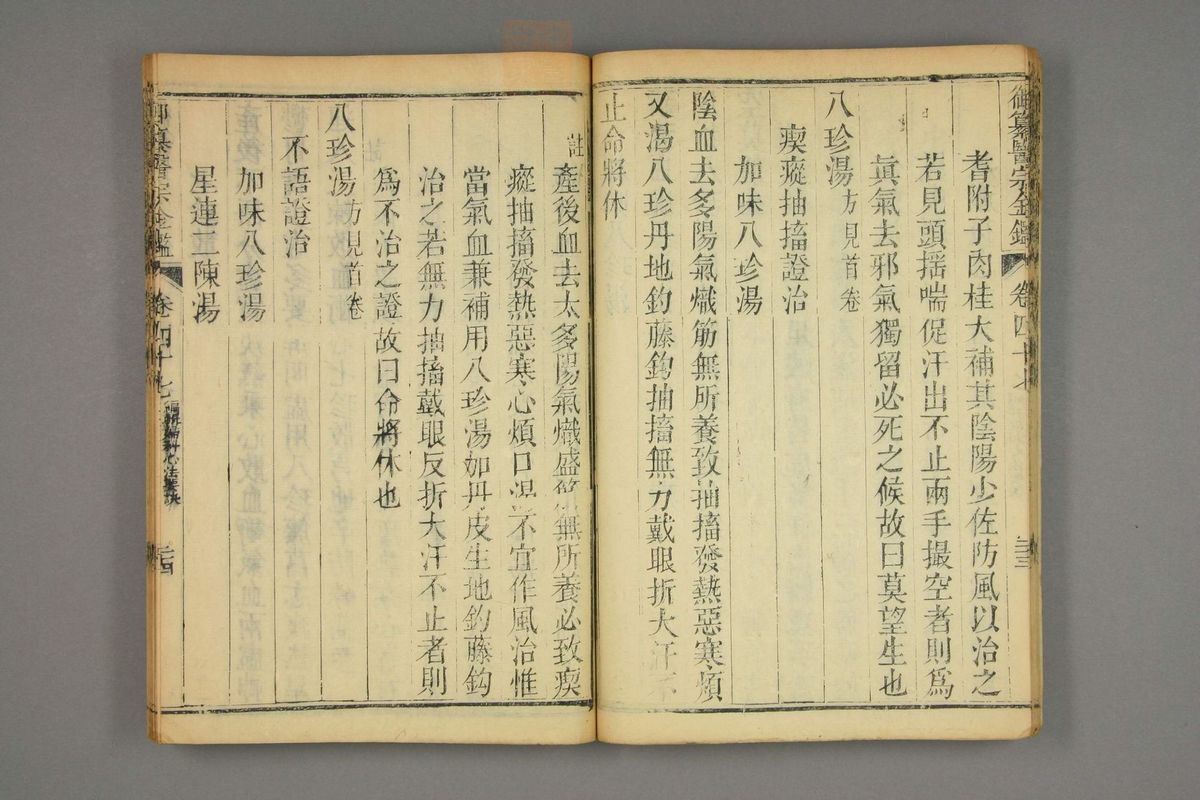 御纂醫宗金鑑 卷四十七 三十三
耆附子肉桂大補其陰陽少佐防風以治之
若見頭搖喘促汗出不止兩手撮空者則爲
眞氣去邪氣獨留必死之候故曰莫望生也
八珍湯方見首卷
瘈瘲抽搐證治
加味八珍湯
陰血去多陽氣熾筋無所養致抽搐發熱惡寒煩
又渴八珍丹地釣藤鈎抽搐無力戴眼折大汗不
止命將休
註產後血去太多陽氣熾盛筋無所養必致瘈
瘲抽搐發熱惡寒心煩口渴不宜作風治惟
當氣血兼補用八珍湯加丹皮生地釣藤鈎
治之若無力抽搐戴眼反折大汗不止者則
爲不治之證故曰命將休也
八珍湯方見首卷
不語證治
加味八珍湯
星連二陳湯
御纂醫宗金鑑 卷四十七 編輯婦科心法要訣